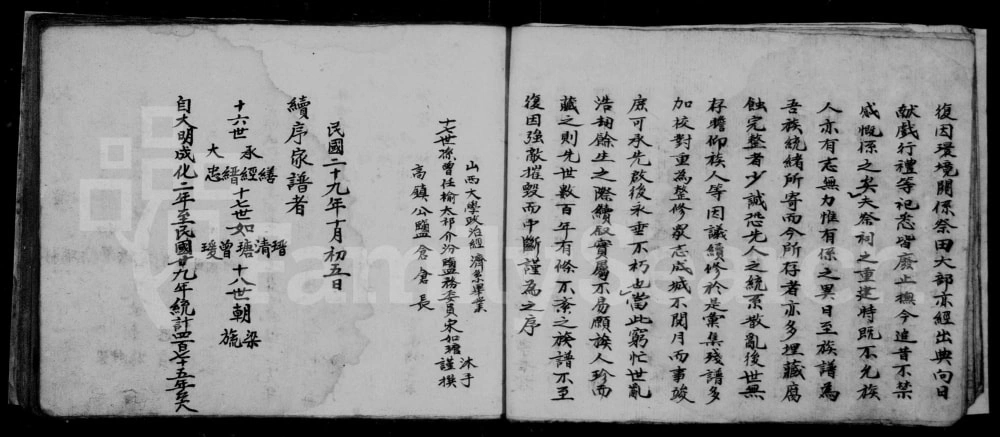 復因環境關係祭田大部亦經出典向日
献戲行禮等祀悉皆廢止撫今追昔不禁
感慨係之矣夫祭祠之重建時既不允族
人亦有志無力惟有俟之異日至族譜為
吾族統緒所寄而今所存者亦多埋藏腐
蝕完整者少誠恐先人之統系散亂後世無
存瞻仰族人等因議續修於是彙集殘譜多
加校對重為整修衆志成城不閱月而事竣
庶可承先啟後永垂不朽也當此窮忙世亂
浩劫餘生之際續叙實屬不易願族人珍而
藏之則先世數百年有條不紊之族譜不至
復因強敵摧毀而中斷謹為之序
山西大學政治經濟系畢業
十七世孫曾任榆太祁介汾鹽務委員宋如瑭沐手謹撰
高鎮公鹽倉倉長
民國二十九年十月初五日
續序家譜者
十六世 承 大忠 縉經繕 十七世 如 瑗曾瑭清瑨 十八世 朝 旒梁
自大明成化二年至民國廿九年統計四百七十五年矣
FamilySearch